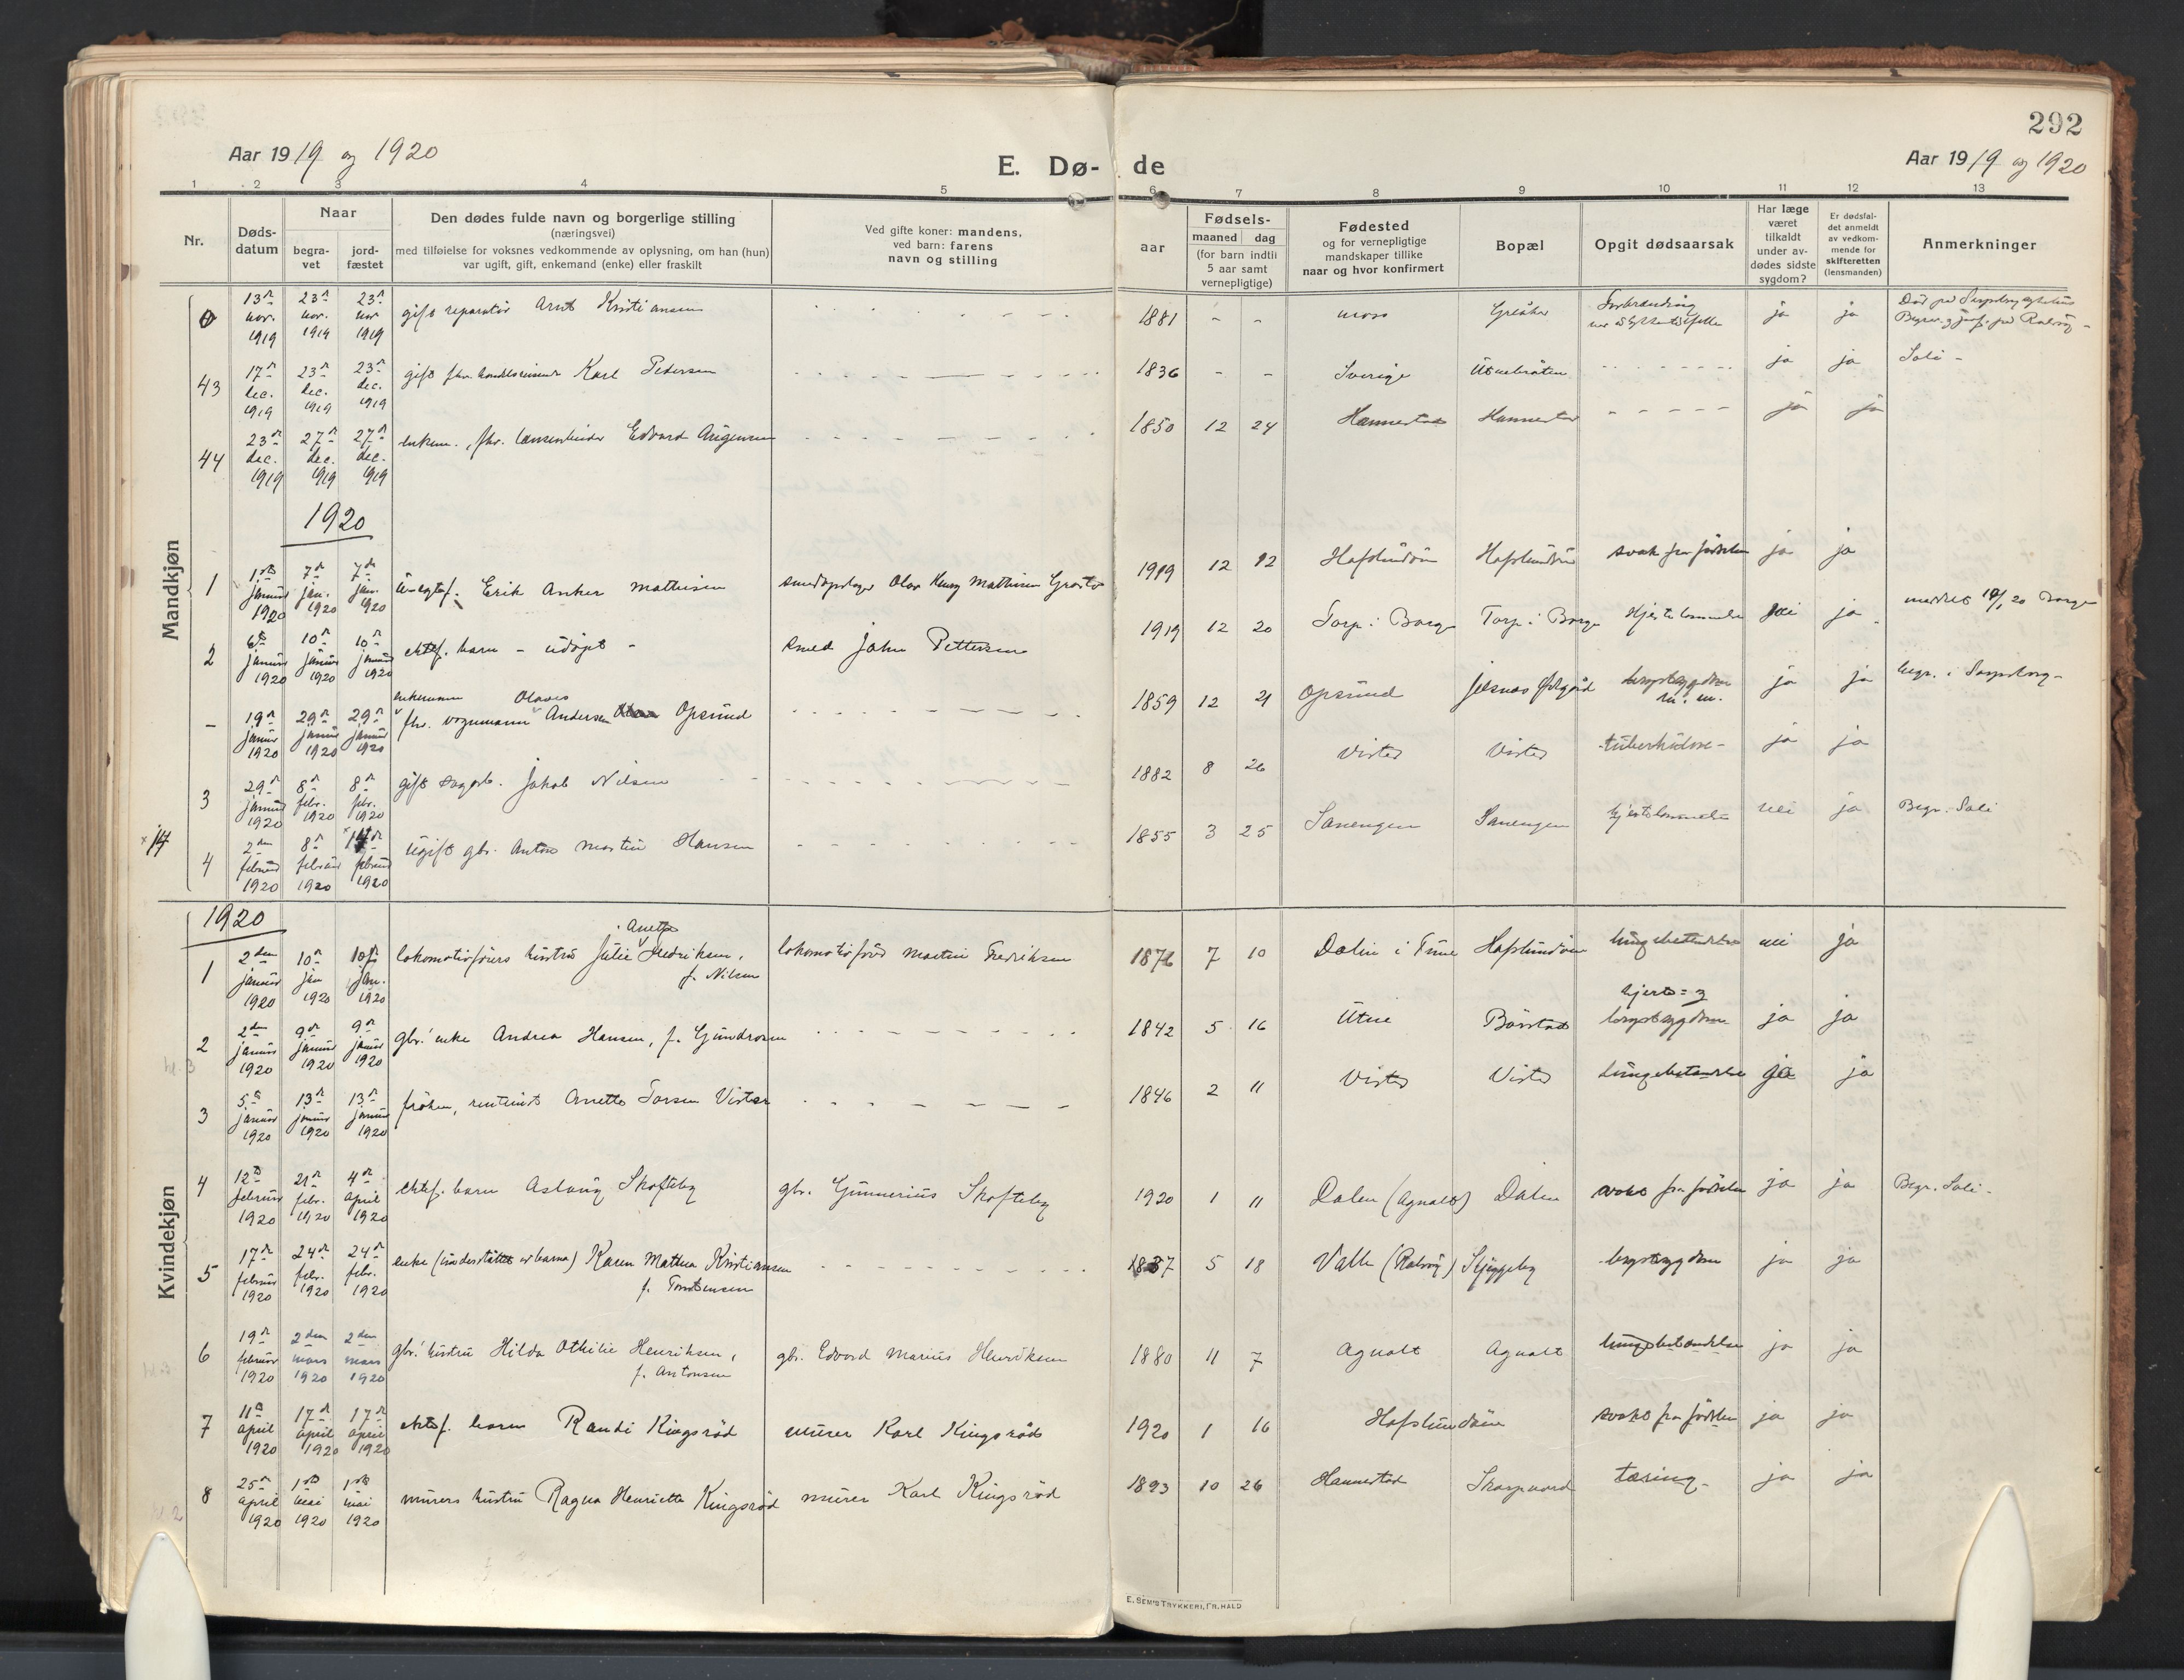 292
Aar 1919 og 1920
E. Dø- de
Aar 1919 og 1920
1 2 3 4 5 6 7 8 9 10 11 12 13
Nr.
Døds-
datum
Naar
begra-
vet
jord-
fæstet
Den dødes fulde navn og borgerlige stilling
(næringsvei)
med tilføielse for voksnes vedkommende av oplysning, om han (hun)
var ugift, gift, enkemand (enke) eller fraskilt
Ved gifte koner: mandens,
ved barn: farens
navn og stilling
aar
Fødsels-
maaned dag
(for barn indtil
5 aar samt
vernepligtige)
Fødested
og for vernepligtige
mandskaper tillike
naar og hvor konfirmert
Bopæl
Opgit dødsaarsak
Har læge
været
tilkaldt
under av-
dødes sidste
sygdom?
Er dødsfal-
det anmeldt
av vedkom-
mende for
skifteretten
(lensmanden)
Anmerkninger
Mandkjøn
0 13de nov. 1919 23de nov. 1919 23de nov 1919 gift reparatør Arnt Kristiansen 1881 - - Moss Greåker Forbrænding ja ja
43 17de dec. 1919 23de dec. 1919 23de dec. 1919 gift fhv. handelsreisende Karl Pedersen 1836 - - Sverige Utnebråten ja ja Soli -
44 23de dec. 1919 27de dec. 1919 27de dec. 1919 enkem., fhv. Edvard 1850 12 24 Hannestad Hannestad ja ja
1920
1 1ste januar 1920 7de jan. 1920 7de jan. 1920 uegtef. Erik Anker Mathisen Olav Henry Mathisen 1919 12 12 Hafslundsøn Hafslundsøn svak fra fødselen ja ja
2 6te januar 1920 10de januar 1920 10de januar 1920 ektef. barn - udøpt - smed John Pettersen 1919 12 20 Torp i Borge Torp i Borge Hjertelammelse nei ja
- 19de januar 1920 29de januar 1920 29de januar 1920 enkemann fhv. vognmann Olaves Andersen Opsund 1859 12 21 Opsund brystsygdom m. m. ja ja begr. i Sarpsborg -
3 29de januar 1920 8de febr. 1920 8de febr. 1920 gift Jakob Nilsen 1882 8 26 Vister Vister tuberkulose - ja ja
× 14
4 2den februar 1920 8de februar 1920 × 14de februar 1920 ugift gbr. Anton Martin Hansen 1855 3 25 Sanengen Sanengen hjertelammelse nei ja Begr. Soli
Kvindekjøn
1920
1 2den januar 1920 10de jan 1920 10de jan. 1920 lokomotivførers hustru Julie Anette Fredriksen, f. Nilsen lokomotivfører Martin Fredriksen 1876 7 10 Dalen i Tune Hafslundsøn lungebetendelse nei ja
2 2den januar 1920 9de januar 1920 9de januar 1920 gbr.' enke Andrea Hansen, f. Gundrosen 1842 5 16 Utne Børstad hjerte= og brystsygdom ja ja
3 5te januar 1920 13de januar 1920 13de januar 1920 frøken, rentenist Anette Torsen Vister 1846 2 11 Vister Vister Lungebetendelse ja ja
4 12te februar 1920 21de febr. 1920 4de april 1920 ektef. barn Aslaug Skofteby gbr. Gunnerius Skofteby 1920 1 11 Dalen (Agnalt) Dalen svak fra fødselen ja ja Begr. Soli -
5 17de februar 1920 24de febr. 1920 24de febr. 1920 enke (understøttet av barna) Karen Mathea Kristiansen f. 1837 5 18 Valle (Rolvsøy) Skjeggeby brystsygdom ja ja
6 19de februar 1920 2den mars 1920 2den mars 1920 gbr.' hustru Hilda Othilie Henriksen, f. Antonsen gbr. Edvard Marius Henriksen 1880 11 7 Agnalt Agnalt lungebetændelse ja ja
7 11te april 1920 17de april 1920 17de april 1920 ektef. barn Randi Kingsrød murer Karl Kingsrød 1920 1 16 Hafslundsøn svak fra fødselen ja ja
8 25de april 1920 1ste mai 1920 1ste mai 1920 murers hustru Ragna Henriette Kingsrød murer Karl Kingsrød 1893 10 26 Hannestad Skarpnord tæring - ja ja
E. SEM'S TRYKKERI, FR.HALD